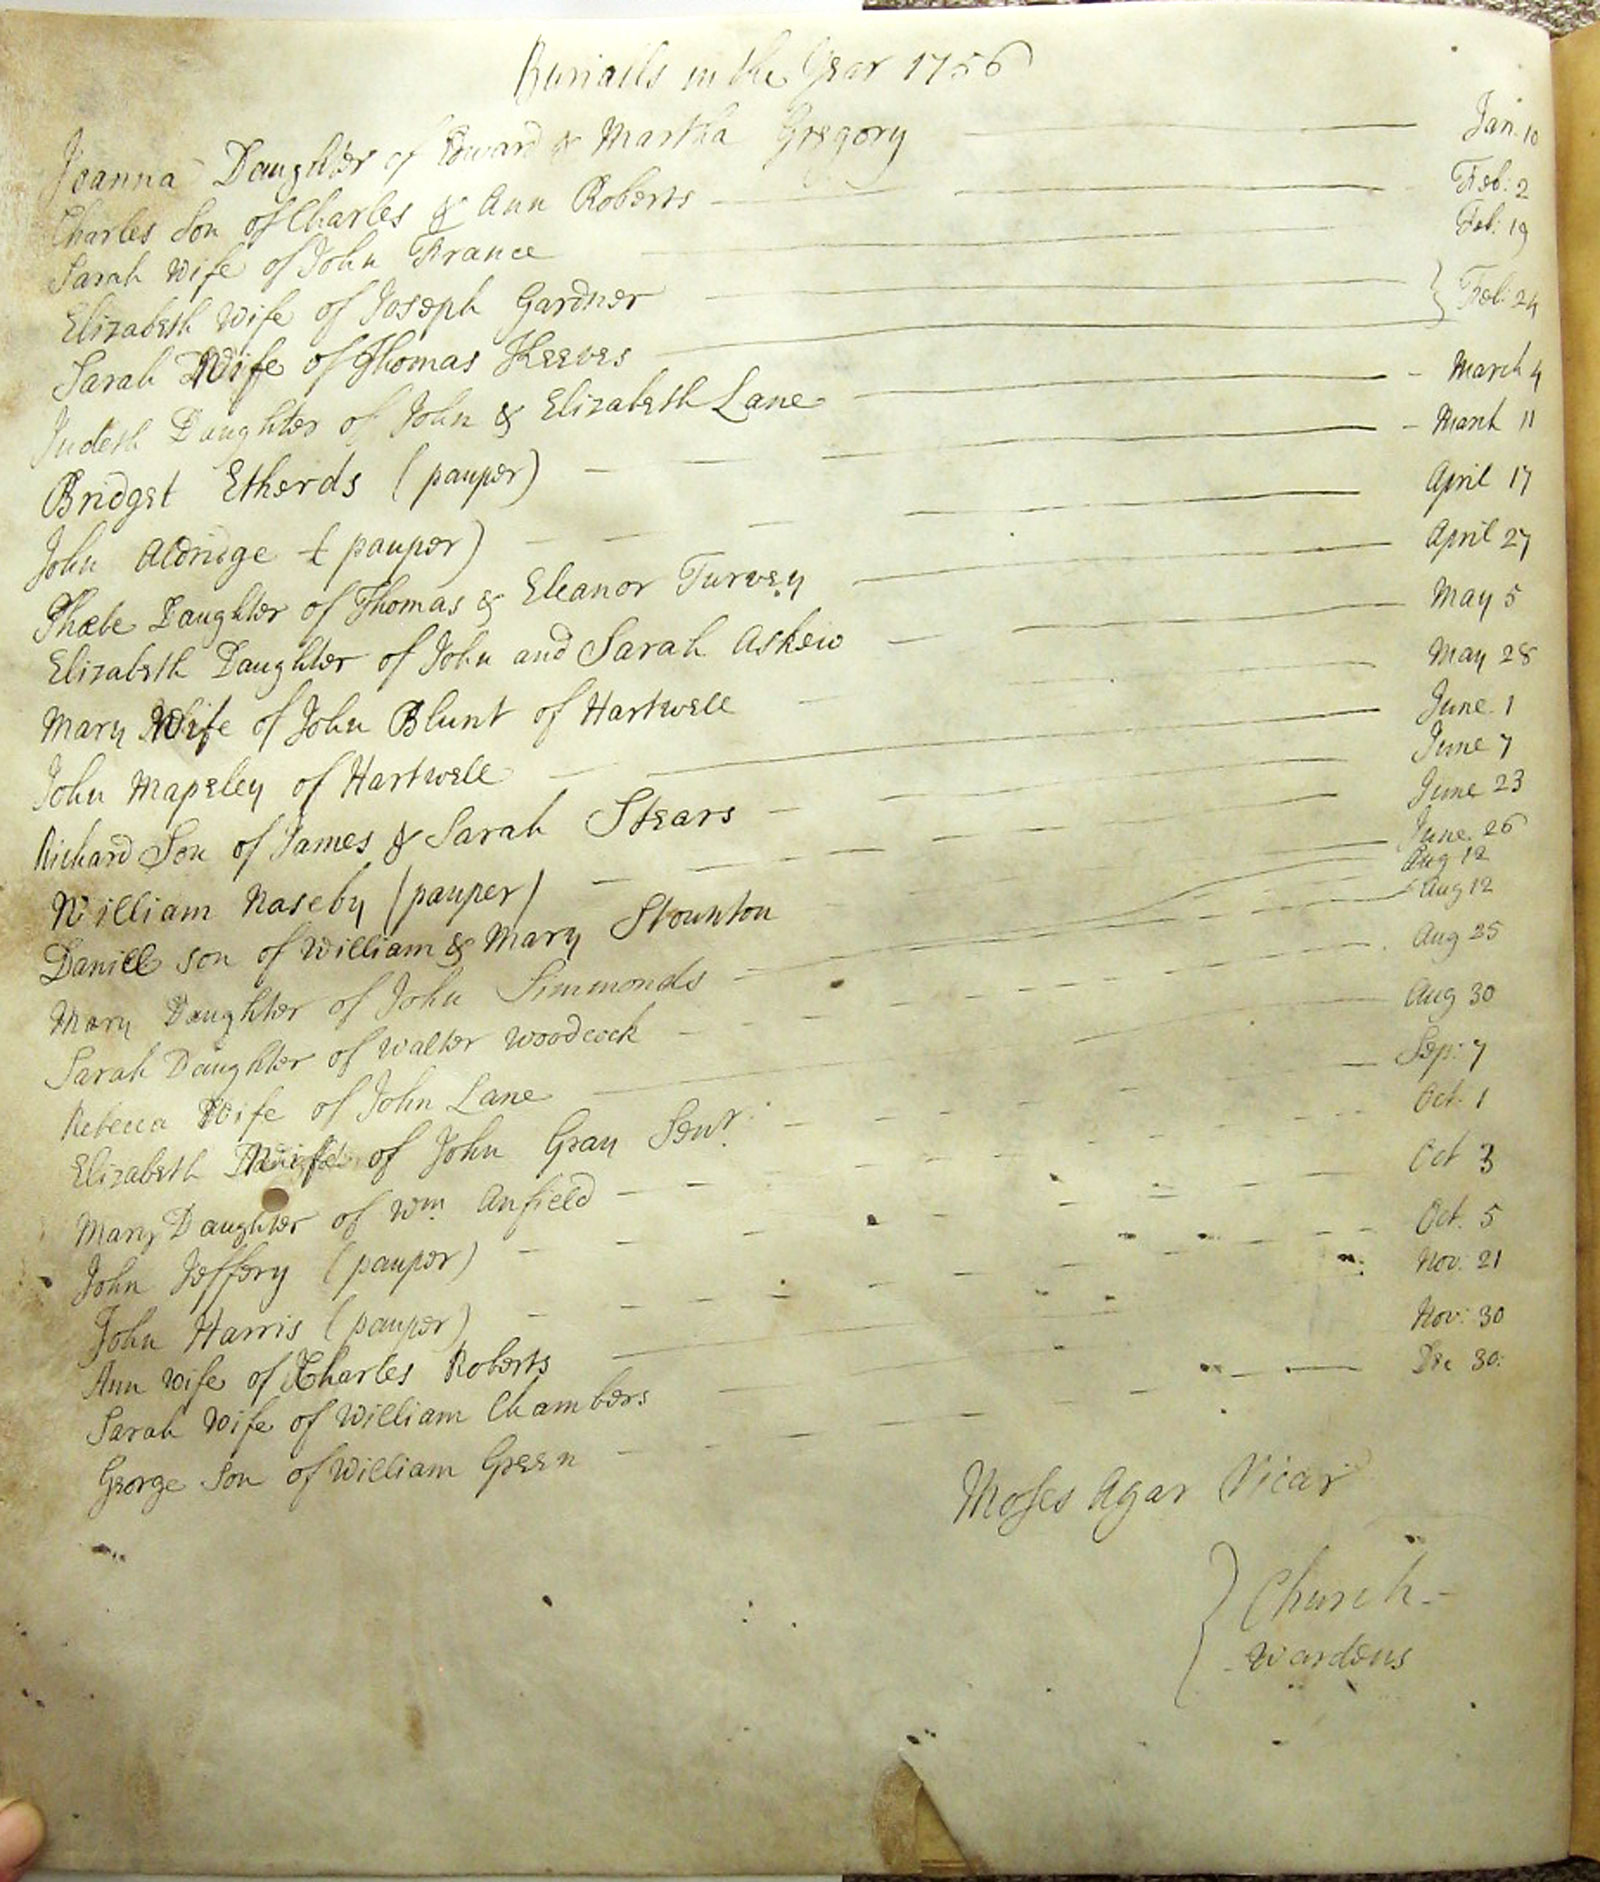 Burialls in the Year 1756
Joanna Daughter of Edward & Martha Gregory Jan. 10
Charles Son of Charles & Ann Roberts Feb: 2
Sarah Wife of John France Feb: 19
Elizabeth Wife of Joseph Gardner
Feb: 24
Sarah Wife of Thomas Keeves
Judeth Daughter of John & Elizabeth Lane March 4
Bridget Etherds (pauper) March 11
John Aldridge (pauper) April 17
Phæbe Daughter of Thomas & Eleanor Turvey April 27
Elizabeth Daughter of John and Sarah Askew May 5
Mary Wife of John Blunt of Hartwell May 28
John Mapeley of Hartwell June 1
Richard Son of James & Sarah Stears June 7
William Naseby (pauper) June 23
Daniell son of William & Mary Stounton June 26
Mary Daughter of John Simmonds Aug 12
Sarah Daughter of Walter Woodcock Aug 12
Rebecca Wife of John Lane Aug 25
Elizabeth Wife of John Gray Senr. Aug 30
Mary Daughter of Wm. Anfield Sep: 7
John Jeffery (pauper) Oct. 1
John Harris (pauper) Oct 3
Ann Wife of Charles Roberts Oct. 5
Sarah Wife of William Chambers Nov: 21
George Son of William Green Nov: 30
Dec 30:
Moses Agar Vicar
Church-
wardens